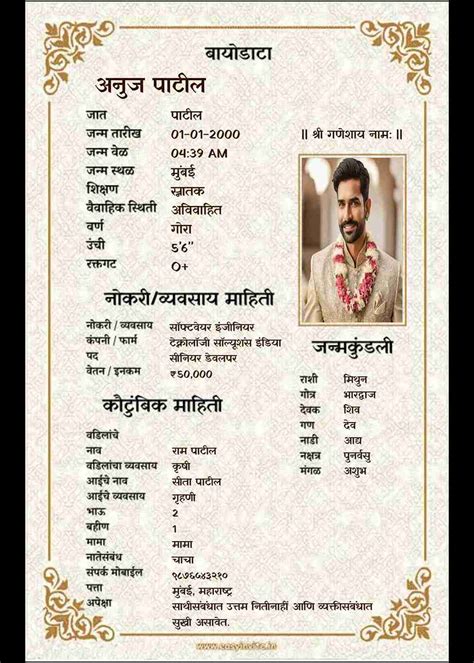 बायोडाटा
अनुज पाटील
जात पाटील
जन्म तारीख 01-01-2000
जन्म वेळ 04:39 AM
जन्म स्थळ मुंबई
शिक्षण स्नातक
वैवाहिक स्थिती अविवाहित
वर्ण गोरा
उंची ५'६''
रक्तगट O+
|| श्री गणेशाय नामः ||
नोकरी/व्यवसाय माहिती
नोकरी / व्यवसाय सॉफ्टवेयर इंजीनियर
कंपनी / फार्म टेक्नोलॉजी सॉल्यूशंस इंडिया
पद सीनियर डेवलपर
वेतन / इनकम ₹50,000
जन्मकुंडली
राशी मिथुन
गोत्र भारद्वाज
देवक शिव
गण देव
नाडी आद्य
नक्षत्र पुनर्वसु
मंगळ अशुभ
कौटुंबिक माहिती
वडिलांचे
नाव राम पाटील
वडिलांचा व्यवसाय कृषी
आईचे नाव सीता पाटील
आईचे व्यवसाय गृहणी
भाऊ 2
बहीण 1
मामा मामा
नातेसंबंध चाचा
संपर्क मोबाईल ९८७६५४३२१०
पत्ता मुंबई, महाराष्ट्र
अपेक्षा साथीसंबंधात उत्तम नितीनाहीं आणि व्यक्तीसंबंधात
सुखी असावेत.
www.easyinvite.in